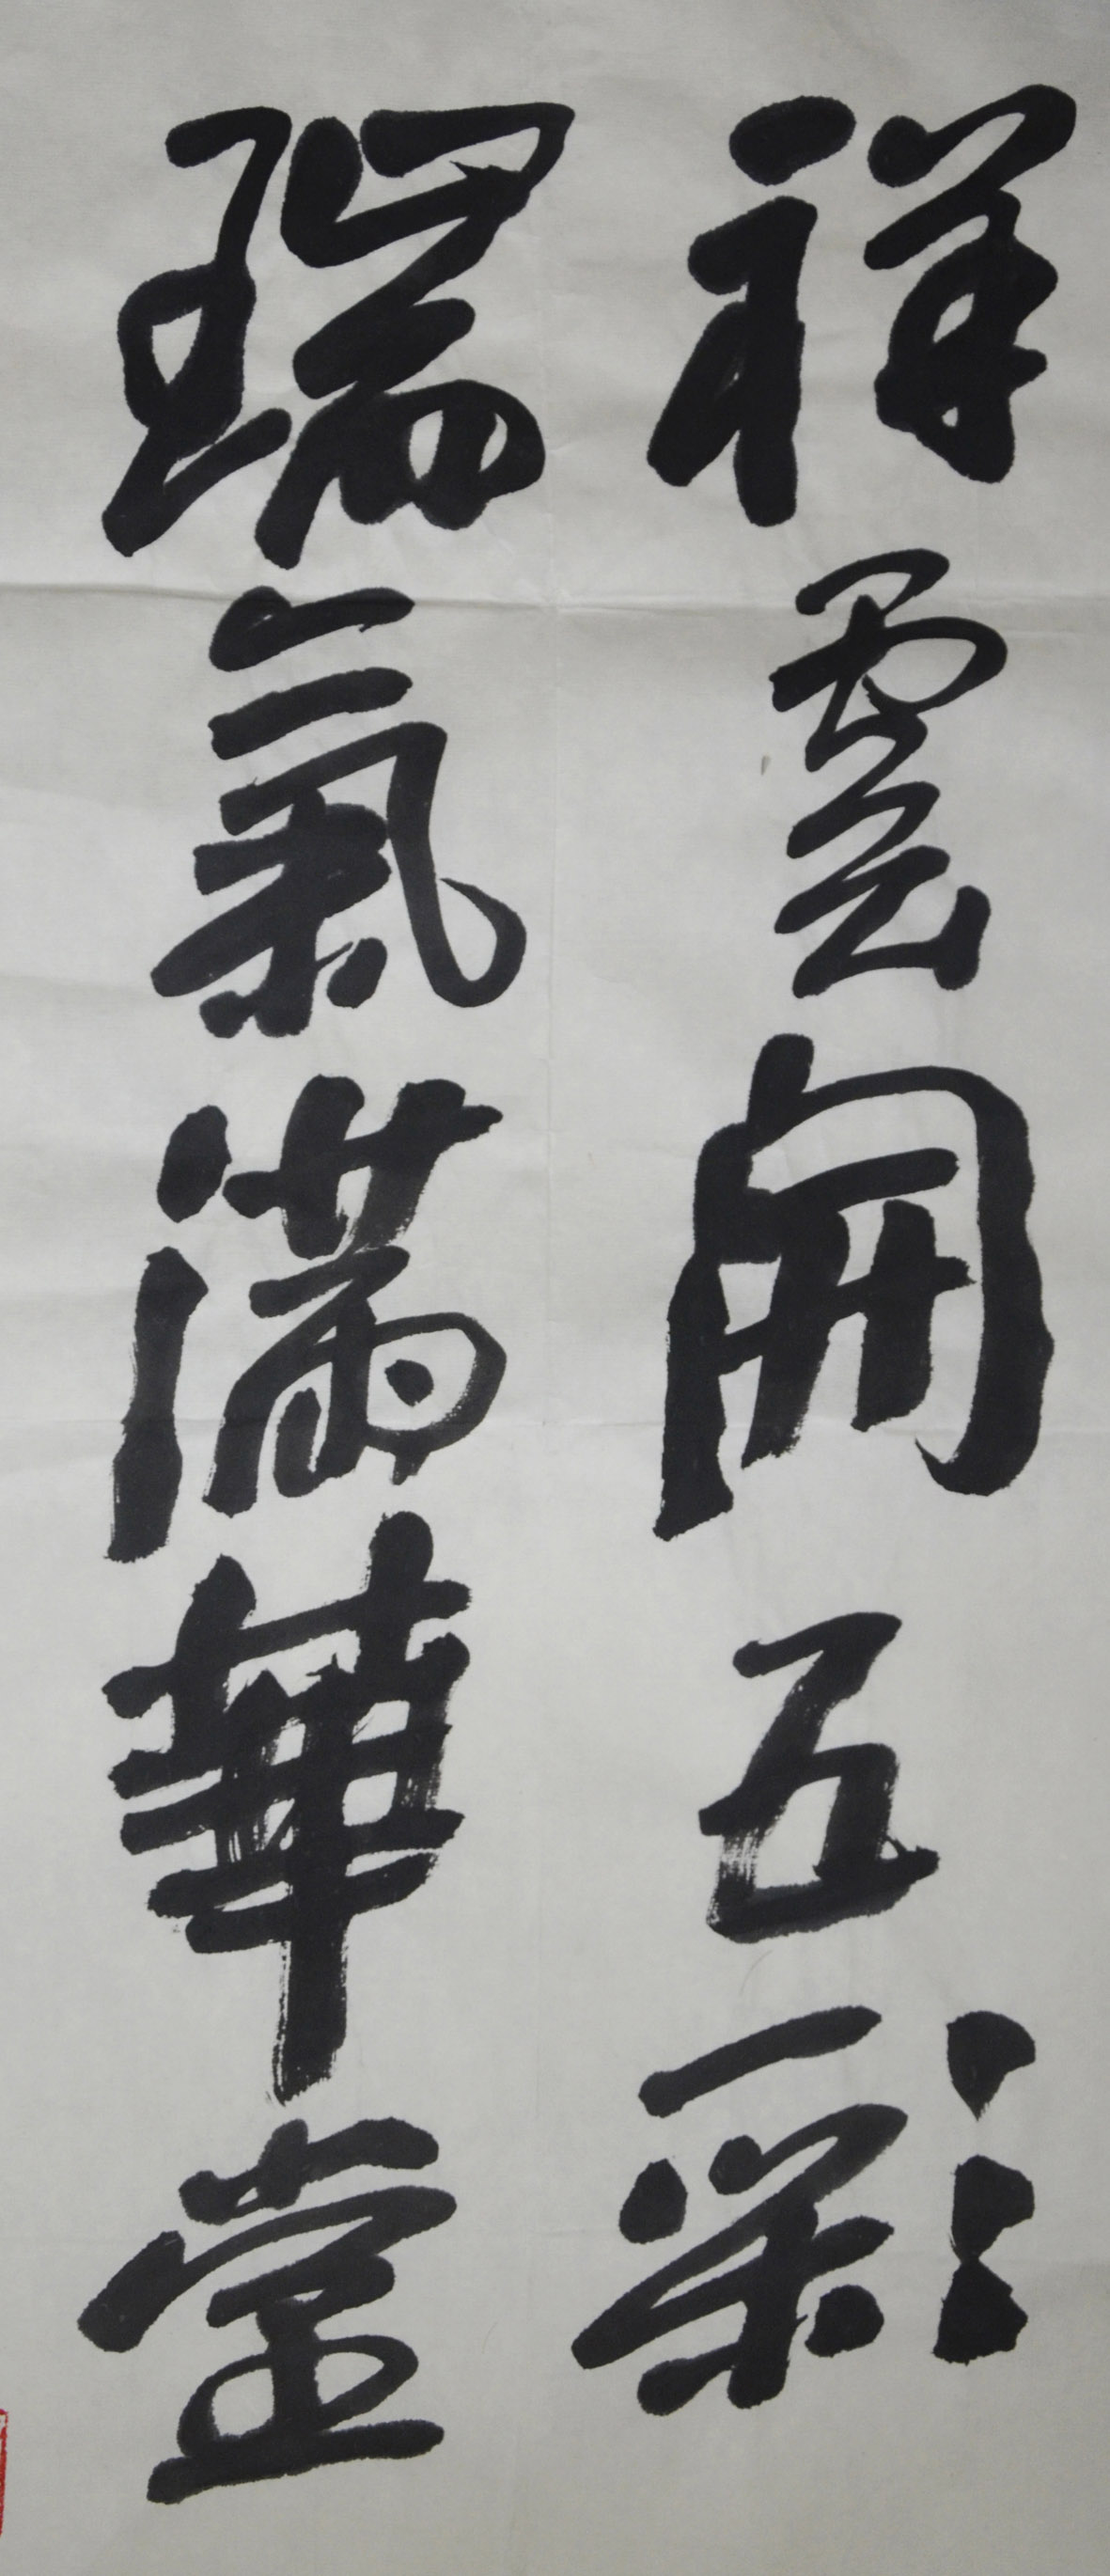 祥雲開五彩
瑞氣滿華堂